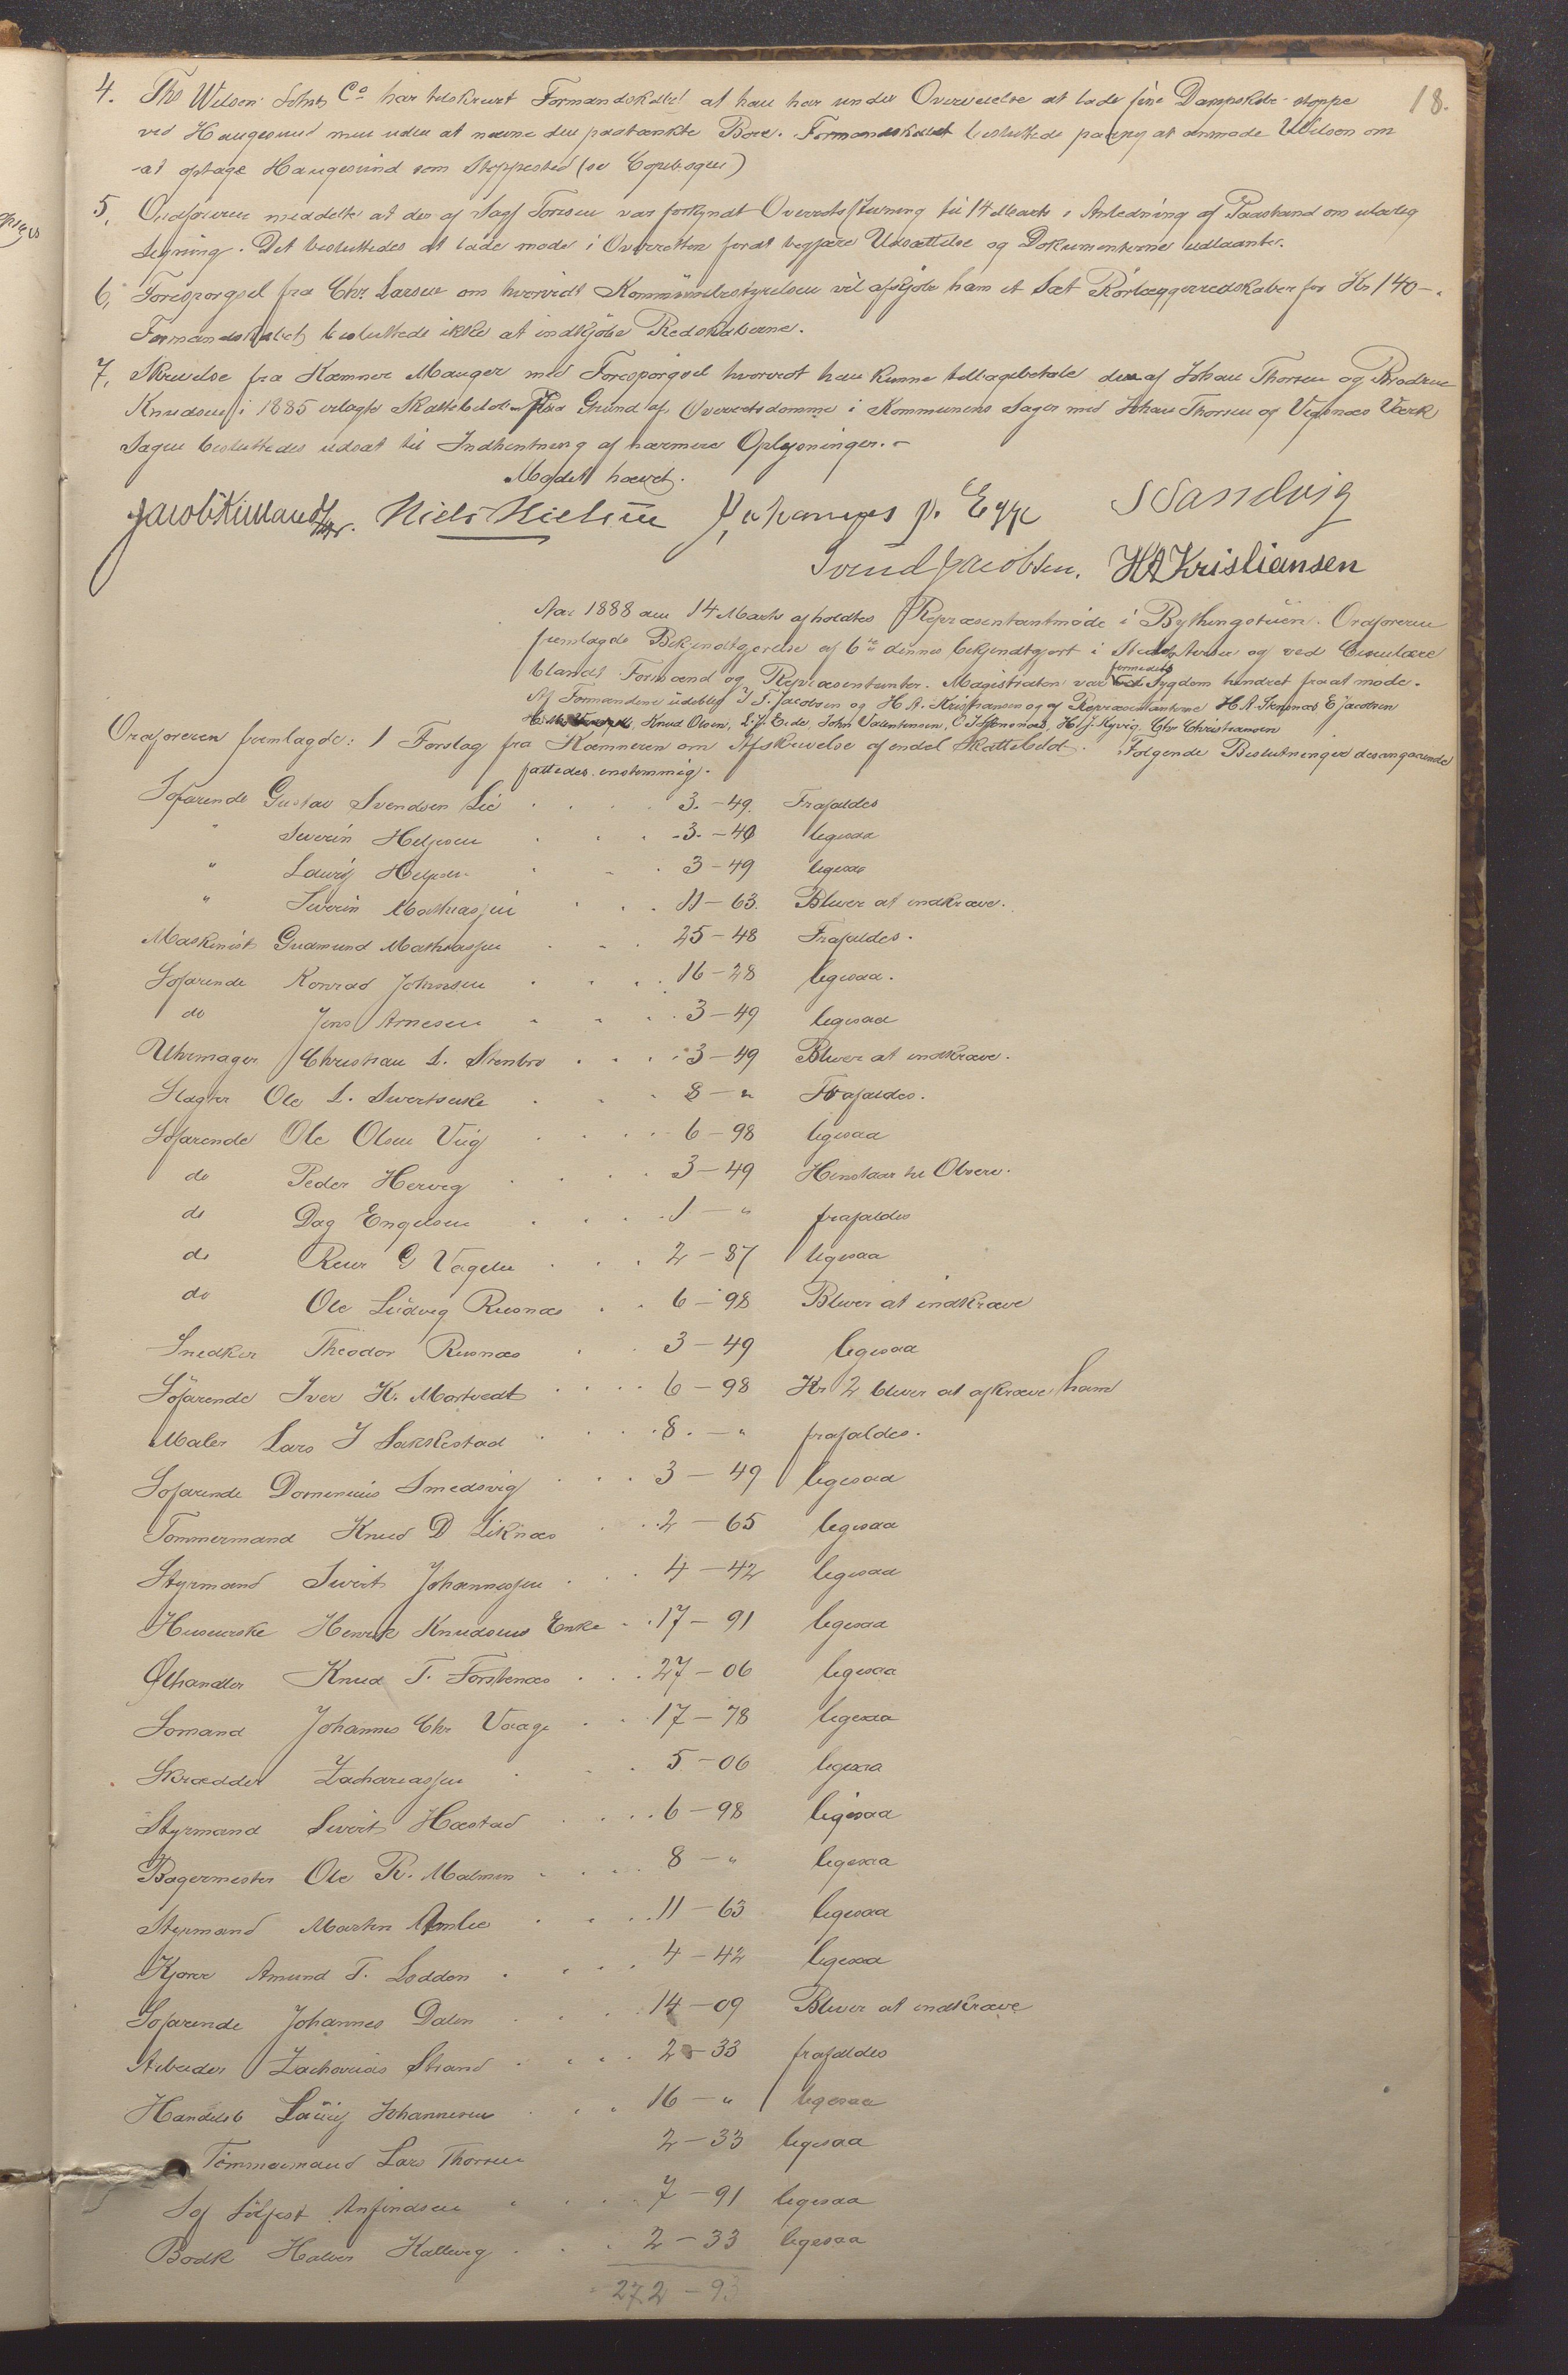 18.
4. Ths Wilson Sons Co har tilskrevet Formandskabet at han har under Overveielse at lade sine Dampskibe stoppe
ved Haugesund men uden at nævne den paatænkte Borre. Formandskabet besluttede paany at anmode Wilson om
at optage Haugesund som Stoppested (se Copibogen)
5. Ordføreren meddelte at der af Sagf Toresen var forkyndt Overretsstevning til 14 Marts i Anledning af Paastand om ulovlig
Ligning. Det besluttedes at lade møde i Overretten forat begjære Udsættelse og Dokumenterne udlaante.
6. Forespørgsel fra Chr. Larsen om hvorvidt Kommunebestyrelsen vil afkjøbe ham et Sæt Rørlæggerredskaber for Kr 140 -.
Formandskabet besluttede ikke at indkjøbe Redskaberne.
7. Skrivelse fra Kæmner Mauger med Forespørgsel hvorvidt han kunne tilbagebetale den af Johan Thorsen og Brødrene
Knudsen i 1885 erlagte Skattebeløb paa Grund af Overretsdomme i Kommunens Sager med Johan Thorsen og Vigsnæs Værk
Sagen besluttedes udsat til Indhentning af nærmere Oplysninger. -
Mødet hævet.
Jacob Kielland jr. Niels Nielsen Johannes J. Egge S Sandvig
Svend Jacobsen. HA Kristiansen
Aar 1888 den 14 Marts afholdtes Repræsentantmøde i Bythingstuen. Ordføreren
fremlagde Bekjendtgjørelse af 6te dennes bekjendtgjort i Stedets Aviser og ved Circulære
blandt Formænd og Repræsentanter. Magistraten var formedelst Sygdom hindret fra at møde.
Af Formændene udeblev I T. Jacobsen og H A. Kristiansen og af Repræsentanterne H A. Stensnæs E Jacobsen
Knud Olsen, L. J. Eide, John Valentinsen, C J Stensnæs, H J. Kyvig, Chr Christiansen
Ordføreren fremlagde: 1 Forslag fra Kæmneren om Afskrivelse af endel Skattebeløb. Følgende Beslutninger desangaaende
fattedes enstemmig.
Søfarende Gustav Svendsen Lie . . . 3.-49. Frafaldes
" Severin Helgesen . . . 3.-49 ligesaa
" Lauritz Helgesen . . . 3-49 ligesaa
" Severin Mathiassen . . . 11-63. Bliver at indkræve.
Maskinist Gudmund Mathiassen . . . 25-48 Frafaldes.
Søfarende Konrad Johnsen . . . 16-28 ligesaa.
do Jens Arnesen . . . 3-49 ligesaa
Uhrmager Christian L. Stenbro . . . 3-49 Bliver at indkræve.
Slagter Ole L. Sivertsens . . . 8-" Frafaldes.
Søfarende Ole Olsen Viig . . . 6-98 ligesaa
do Peder Hervig . . . 3-49 Henstaar til Observ.
do Dag Engelsen . . . 1-" frafaldes
do Reier G Vagelen . . . 2-87 ligesaa
do Ole Ludvig Risnæs . . 6-98 Bliver at indkræve
Snedker Theodor Risnæs . . 3-49 ligesaa
Søfarende Iver K. Mortvedt . . . 6-98 Kr 2 bliver at afkræve ham
Maler Lars J Sakkestad . . . 8.-" frafaldes.
Søfarende Dominicus Smedsvig . . . 3-49 ligesaa
Tømmermand Knud D. Liknæs . . 2-65 ligesaa
Styrmand Sivert Johannessen . . . 4-42 ligesaa
Huseierske Henrik Knudsens Enke . . 17-91 ligesaa
Ølhandler Knud T. Førstenæs . . . 27-06 ligesaa
Sømand Johannes Chr Vaage . . 17-78 ligesaa
Skrædder Zachariassen . . . 5-06 ligesaa
Styrmand Sivert Hæstad . . . 6-98 ligesaa
Bagermester Ole R. Malmin . . . 8-" ligesaa
Styrmand Martin Amlie . . . 11-63 ligesaa
Kjører Amund T. Lodden . . . 4-42 ligesaa
Søfarende Johannes Dalen . . . 14-09 Bliver at indkræve
Arbeider Zacharias Strand . . . 2-33 frafaldes
Handelsb Lauritz Johannesen . . . 16-" ligesaa
Tømmermand Lars Thorsen 2-33 ligesaa
Søf Sølfest Anfindsen . . . 7-91 ligesaa
Bødk Halvor Kallevig . . . 2-33 ligesaa
272-93